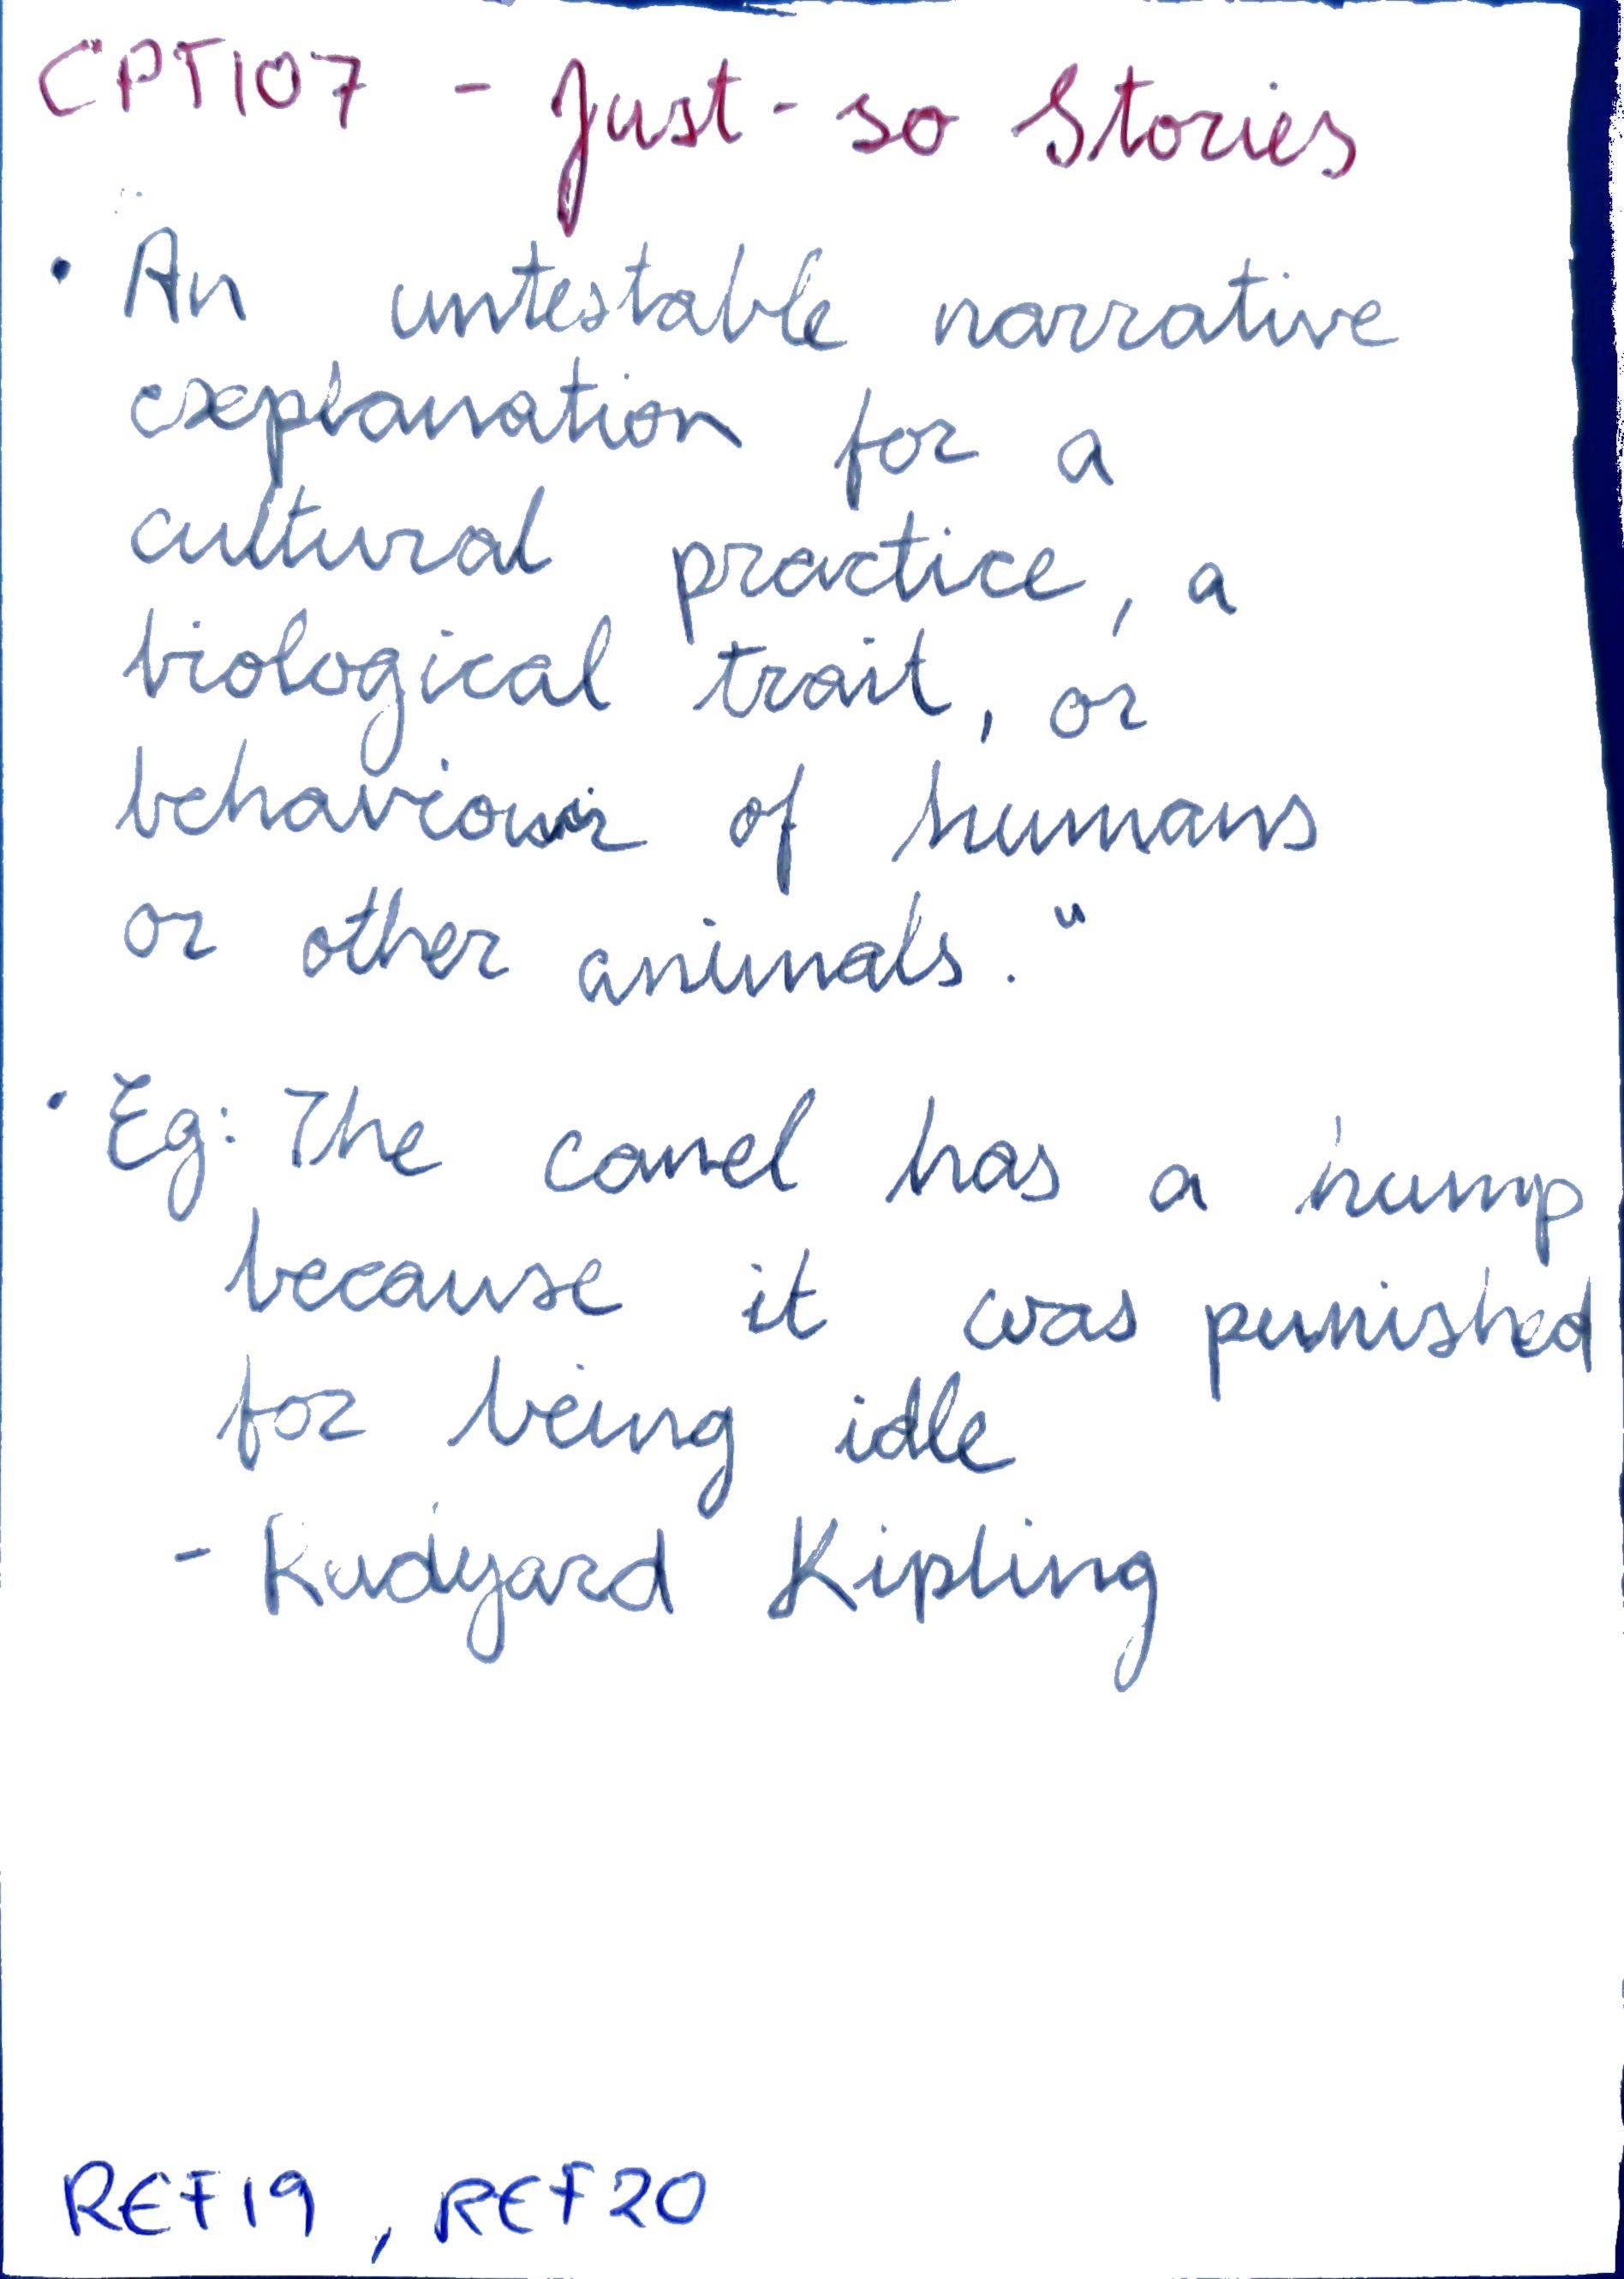 CPT107 - Just-so Stories
• An untestable narrative
explanation for a
cultural practice, a
biological trait, or
behaviour of humans
or other animals."
• Eg: The camel has a hump
because it was punished
for being idle
- Rudyard Kipling
REF19, REF20